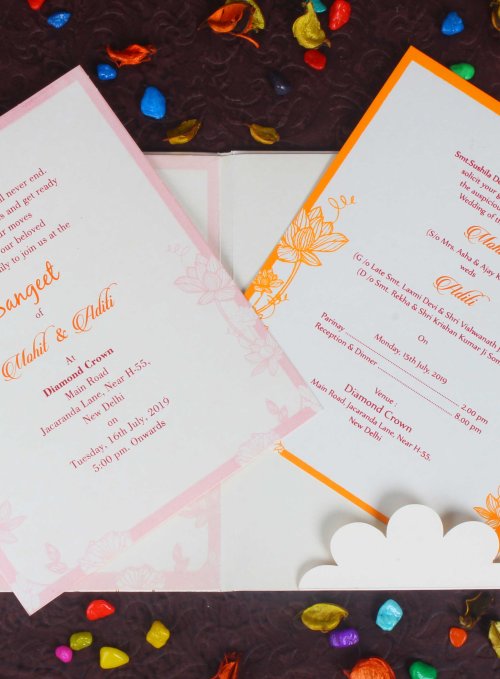 ll never end.
s and get ready
ur moves
our beloved
ily to join us at the
Sangeet
of
Mohit & Aditi
At
Diamond Crown
Main Road
Jacaranda Lane, Near H-55,
New Delhi
on
Tuesday, 16th July, 2019
5:00 pm. Onwards
Smt.Sushila De
solicit your g
the auspiciou
Wedding of
(S/o Mrs. Asha & Ajay
weds
Aditi
(G /o Late Smt. Laxmi Devi & Shri Vishwanath J
(D /o Smt. Rekha & Shri Krishan Kumar Ji Son
On
Monday, 15th July, 2019
Parinay ........ 2.00 pm
Reception & Dinner ........ 8.00 pm
Venue :
Diamond Crown
Main Road, Jacaranda Lane, Near H-55,
New Delhi